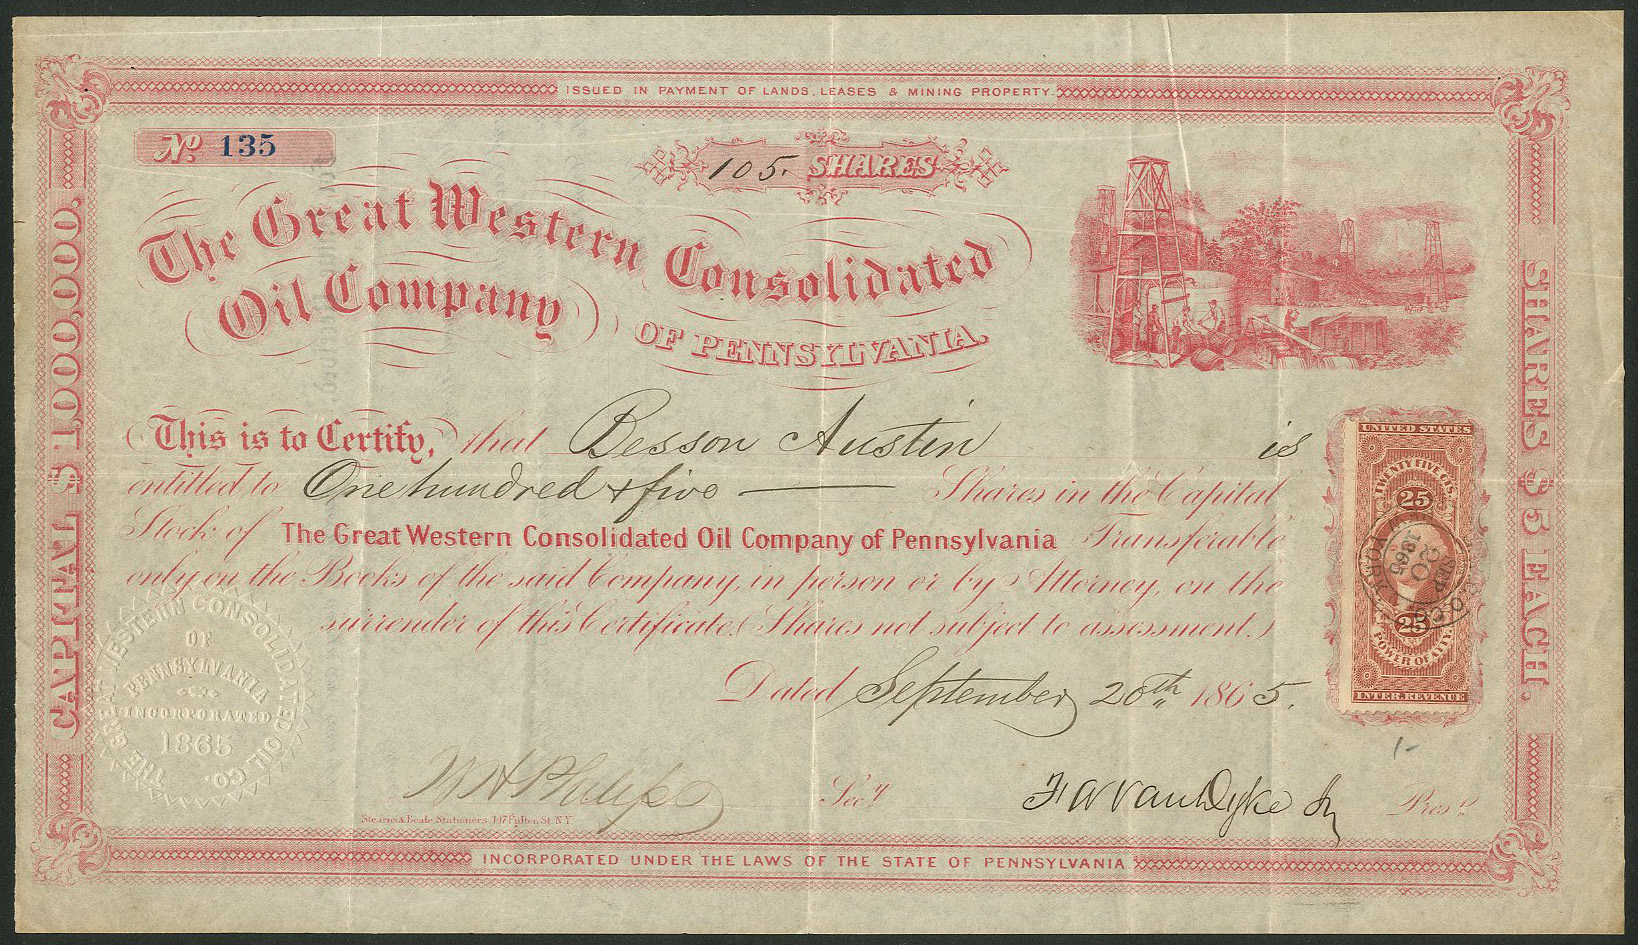 ISSUED IN PAYMENT OF LANDS, LEASES & MINING PROPERTY.
No. 135
105. SHARES
The Great Western Consolidated
Oil Company OF PENNSYLVANIA.
CAPITAL $1,000,000.
SHARES $5 EACH.
This is to Certify, that Besson Austin is
entitled to One hundred & five Shares in the Capital
Stock of The Great Western Consolidated Oil Company of Pennsylvania Transferable
only on the Books of the said Company, in person or by Attorney, on the
surrender of this Certificate. (Shares not subject to assessment.)
Dated September 20th 1865.
UNITED STATES
TWENTY FIVE CTS.
25
SEP
20
1865
25
POWER OF ATTY.
INTER. REVENUE
THE GREAT WESTERN CONSOLIDATED OIL CO.
OF
PENNSYLVANIA
INCORPORATED
1865
1-
W H Philips Secy F W Van Dyke Jr Prest
Stearns & Beale Stationers, 147 Fulton St. N.Y.
INCORPORATED UNDER THE LAWS OF THE STATE OF PENNSYLVANIA